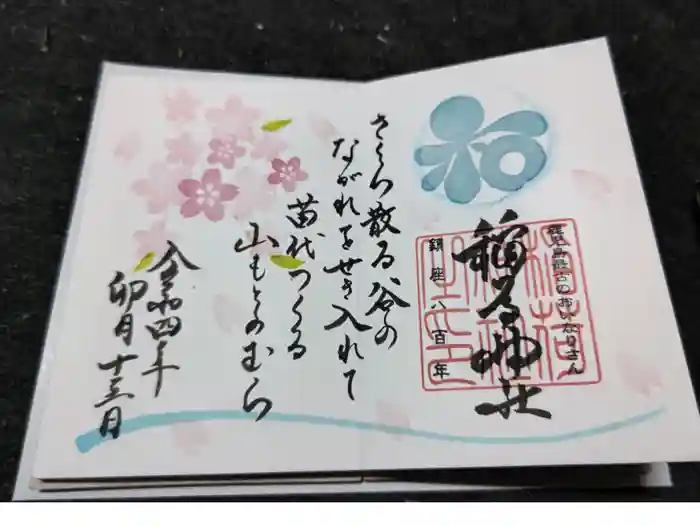 和
鹿児島最古のおいなりさん
稲荷神社
鎮座八百年
さくら散る谷の
ながれをせき入れて
苗代つくる
山もとのむら
令和四年
卯月十三日